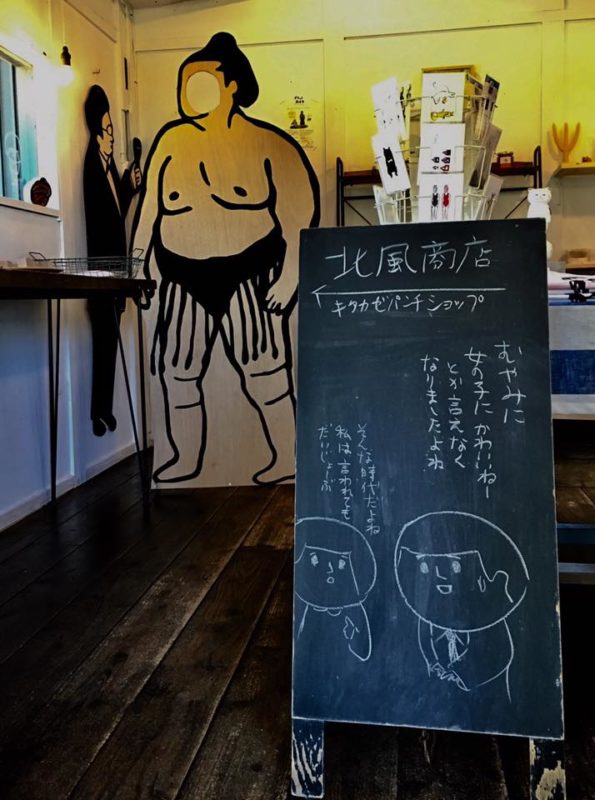 北風商店
キタカゼパンチショップ
むやみに
女の子にかわいいねー
とか言えなく
なりましたよね
そんな時代だよね
私は言われても
だいじょーぶ